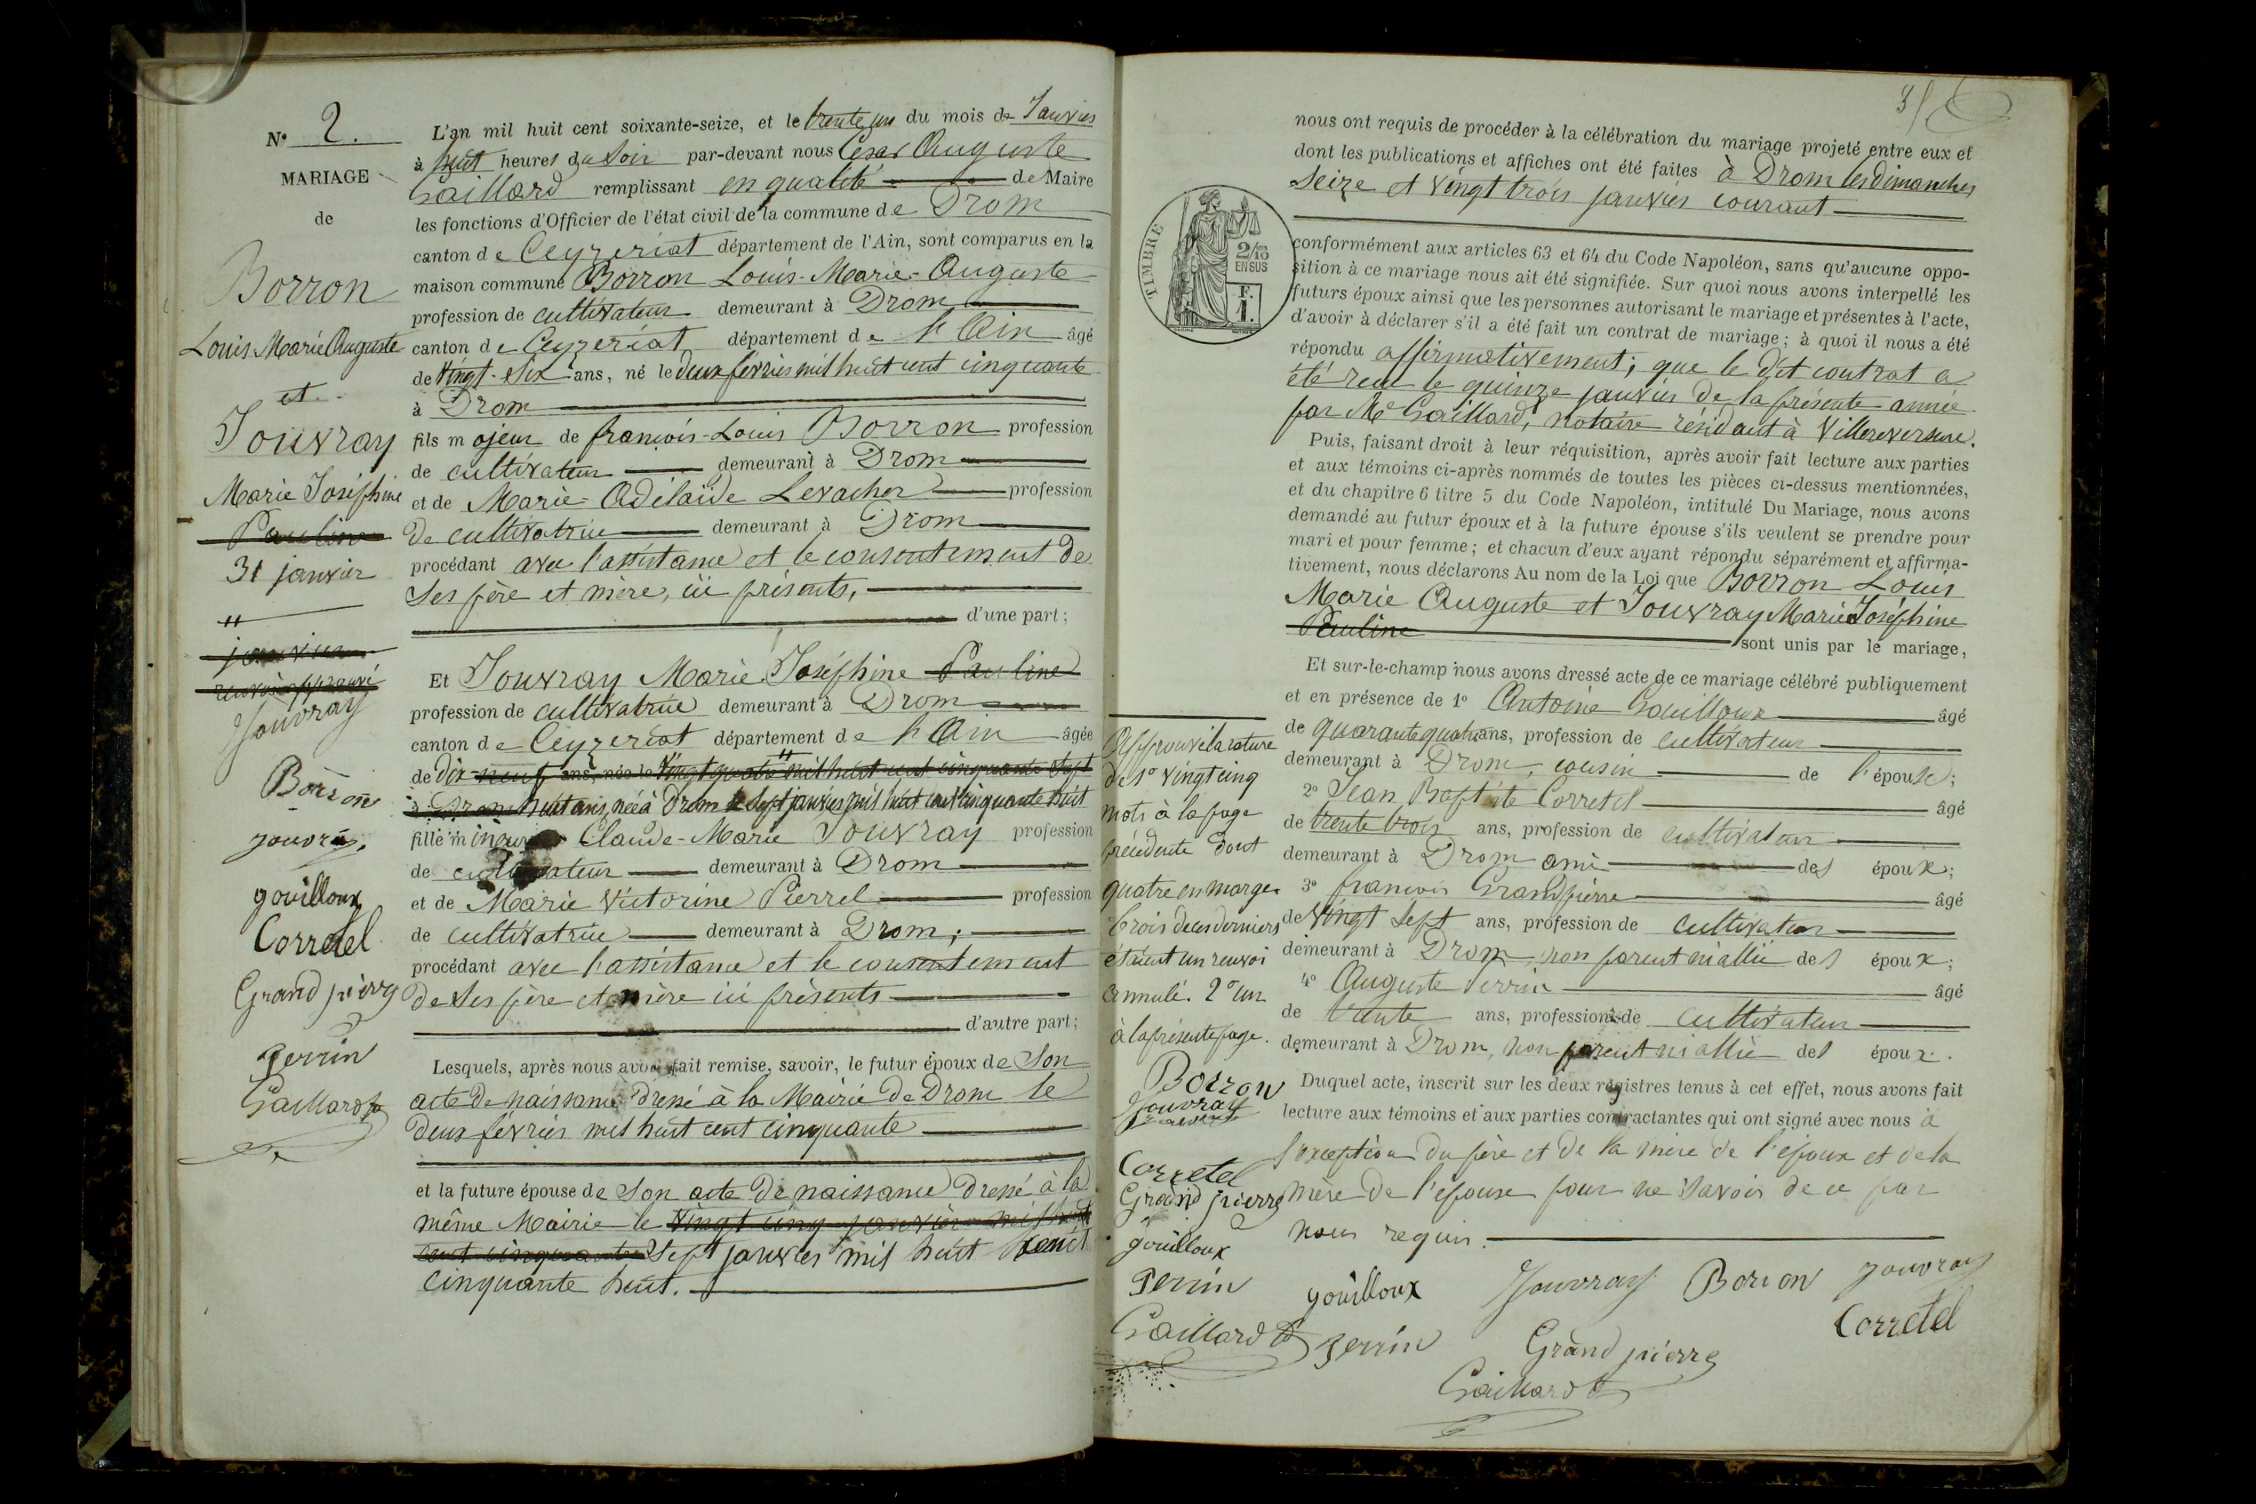 N° 2.
MARIAGE
de
Borron
Louis Marie Auguste
et
Jouvray
Marie Joséphine
Pauline
31 janvier
"
janvier
renvoi approuvé
Jouvray
Borron
jouvray
gouilloux
Corretel
Grand pierre
Perrin
Gaillard
L'an mil huit cent soixante-seize, et le trente un du mois de Janvier
à huit heures du Soir par-devant nous César Auguste
Gaillard remplissant en qualité de Maire
les fonctions d'Officier de l'état civil de la commune de Drom
canton de Ceyzeriat département de l'Ain, sont comparus en la
maison commune Borron Louis-Marie-Auguste
profession de cultivateur demeurant à Drom
canton de Ceyzeriat département de l'Ain âgé
de Vingt-Six ans, né le deux février mil huit cent cinquante
à Drom
fils majeur de françois-Louis Borron profession
de cultivateur demeurant à Drom
et de Marie-Adélaïde Levacher profession
de cultivatrice demeurant à Drom
procédant avec l'assistance et le consentement de
Ses père et mère, ici présents,
d'une part;
Et Jouvray Marie Joséphine Pauline
profession de cultivatrice demeurant à Drom
canton de Ceyzeriat département de l'Ain âgée
de dix-neuf ans, née le Vingt quatre " mil huit cent cinquante Sept
à Drom huit ans, née à Drom le Sept janvier mil huit cent cinquante huit
fille mineure Claude-Marie Jouvray profession
de cultivateur demeurant à Drom
et de Marie Victorine Pierrel profession
de cultivatrice demeurant à Drom;
procédant avec l'assistance et le consentement
de Ses père et mère ici présents
d'autre part;
Lesquels, après nous avoir fait remise, savoir, le futur époux de Son
acte de naissance dressé à la Mairie de Drom le
deux février mil huit cent cinquante
et la future épouse de Son acte de naissance dressé à la
même Mairie le Vingt cinq janvier mil huit
cent cinquante Sept janvier mil huit cent
cinquante huit.
3
TIMBRE
2/10
EN SUS
F.
1.
nous ont requis de procéder à la célébration du mariage projeté entre eux et
dont les publications et affiches ont été faites à Drom les dimanches
Seize et Vingt trois janvier courant
conformément aux articles 63 et 64 du Code Napoléon, sans qu'aucune oppo-
sition à ce mariage nous ait été signifiée. Sur quoi nous avons interpellé les
futurs époux ainsi que les personnes autorisant le mariage et présentes à l'acte,
d'avoir à déclarer s'il a été fait un contrat de mariage; à quoi il nous a été
répondu affirmativement; que le dit contrat a
été reçu le quinze janvier de la présente année
par Me Gaillard, notaire résidant à Villereversure.
Puis, faisant droit à leur réquisition, après avoir fait lecture aux parties
et aux témoins ci-après nommés de toutes les pièces ci-dessus mentionnées,
et du chapitre 6 titre 5 du Code Napoléon, intitulé Du Mariage, nous avons
demandé au futur époux et à la future épouse s'ils veulent se prendre pour
mari et pour femme; et chacun d'eux ayant répondu séparément et affirma-
tivement, nous déclarons Au nom de la Loi que Borron Louis
Marie Auguste et Jouvray Marie Joséphine
Pauline sont unis par le mariage,
Et sur-le-champ nous avons dressé acte de ce mariage célébré publiquement
et en présence de 1° Antoine Gouilloux âgé
de quarante quatre ans, profession de cultivateur
demeurant à Drom, cousin de l'épouse;
2° Jean Baptiste Corretel âgé
de trente trois ans, profession de cultivateur
demeurant à Drom ami des époux;
3° françois Grandpierre âgé
de Vingt Sept ans, profession de cultivateur
demeurant à Drom, non parent ni allié des époux;
4° Auguste Perrin âgé
de trente ans, profession de cultivateur
demeurant à Drom, non parent ni allié des époux.
Duquel acte, inscrit sur les deux registres tenus à cet effet, nous avons fait
lecture aux témoins et aux parties contractantes qui ont signé avec nous à
l'exception du père et de la mère de l'époux et de la
mère de l'épouse pour ne Savoir de ce par
nous requis.
gouilloux Jouvray Borron jouvray
Perrin Grand pierre Corretel
Gaillard
Approuvé la rature
de 1° vingt cinq
mots à la page
précédente dont
quatre en marge.
trois de ces derniers
étaient un renvoi
annulé. 2° un
à la présente page.
Borron
Jouvray
Corretel
Grand pierre
gouilloux
Perrin
Gaillard